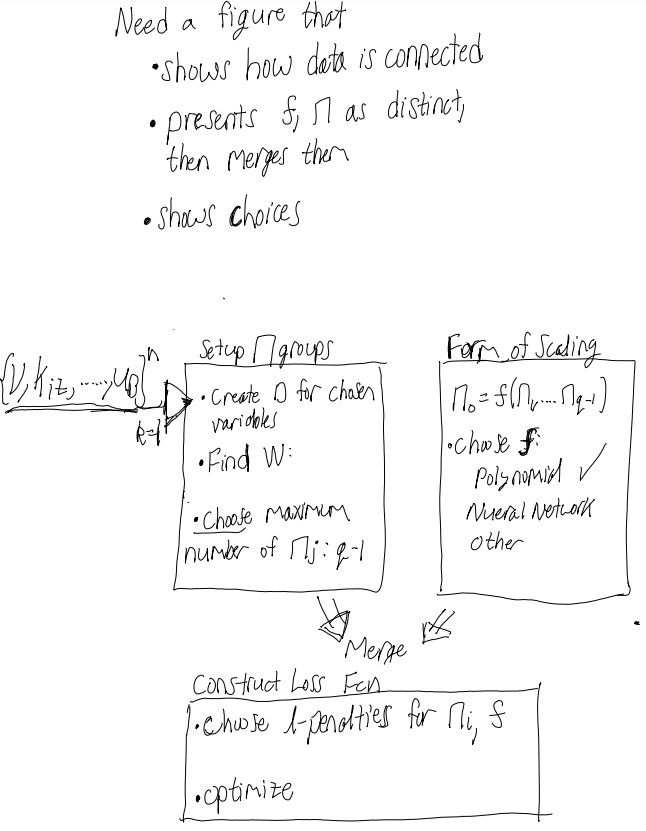 Need a figure that
• shows how data is connected
• presents f, Π as distinct,
then merges them
• shows choices
n
Setup Π groups
• Create D for chosen
variables
• Find W:
• Choose maximum
number of Πj : q-1
Form of Scaling
Π0 = f(Π1, .... Πq-1)
• choose f:
Polynomial ✓
Nueral Network
Other
Merge
Construct Loss Fcn
• choose l-penalties for Πi, f
• optimize